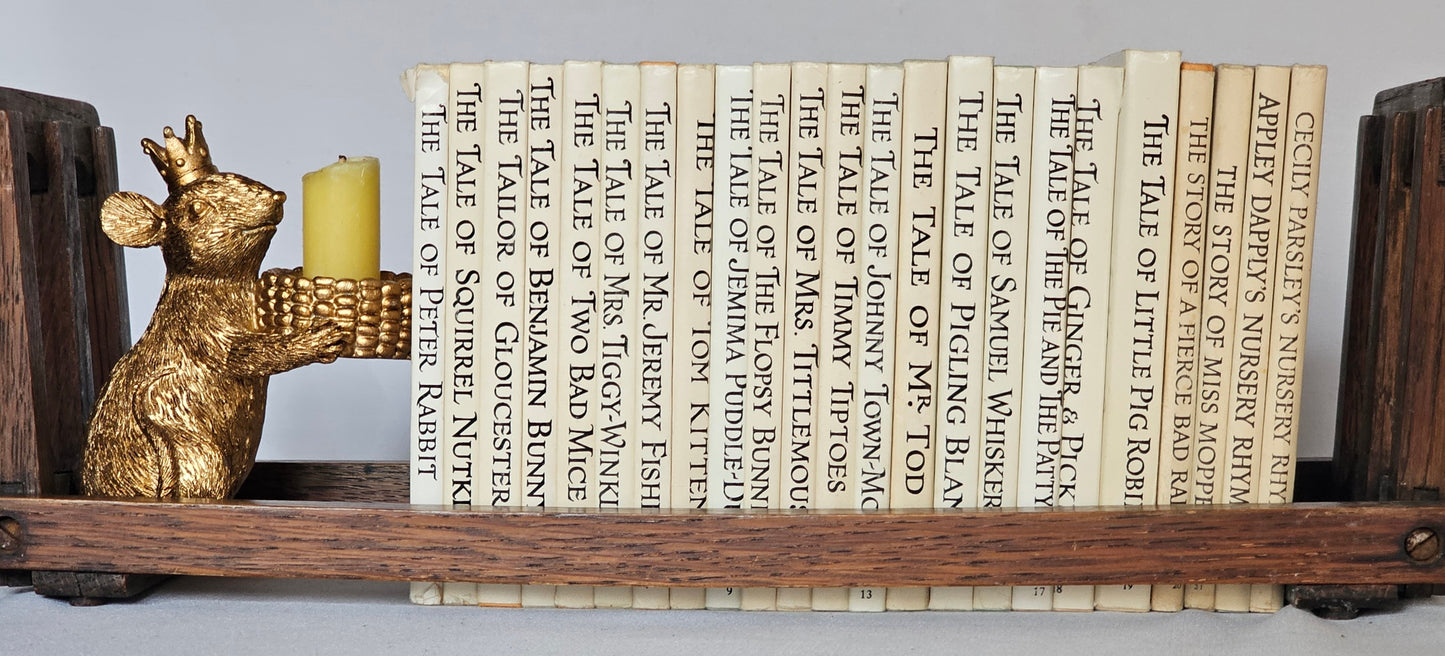 THE TALE OF PETER RABBIT
THE TALE OF SQUIRREL NUTKI
THE TAILOR OF GLOUCESTER
THE TALE OF BENJAMIN BUNN
THE TALE OF TWO BAD MICE
THE TALE OF MRS. TIGGY-WINKL
THE TALE OF MR. JEREMY FISH
THE TALE OF TOM KITTEN
THE TALE OF JEMIMA PUDDLE-DU
9
THE TALE OF THE FLOPSY BUNN
THE TALE OF MRS. TITTLEMOUS
THE TALE OF TIMMY TIPTOES
THE TALE OF JOHNNY TOWN-MO
13
THE TALE OF MR. TOD
THE TALE OF PIGLING BLAN
THE TALE OF SAMUEL WHISKER
THE TALE OF THE PIE AND THE PATTY
17
THE TALE OF GINGER & PICK
18
THE TALE OF LITTLE PIG ROBI
19
THE STORY OF A FIERCE BAD RA
20
THE STORY OF MISS MOPP
21
APPLEY DAPPLY'S NURSERY RHYM
CECILY PARSLEY'S NURSERY RHY